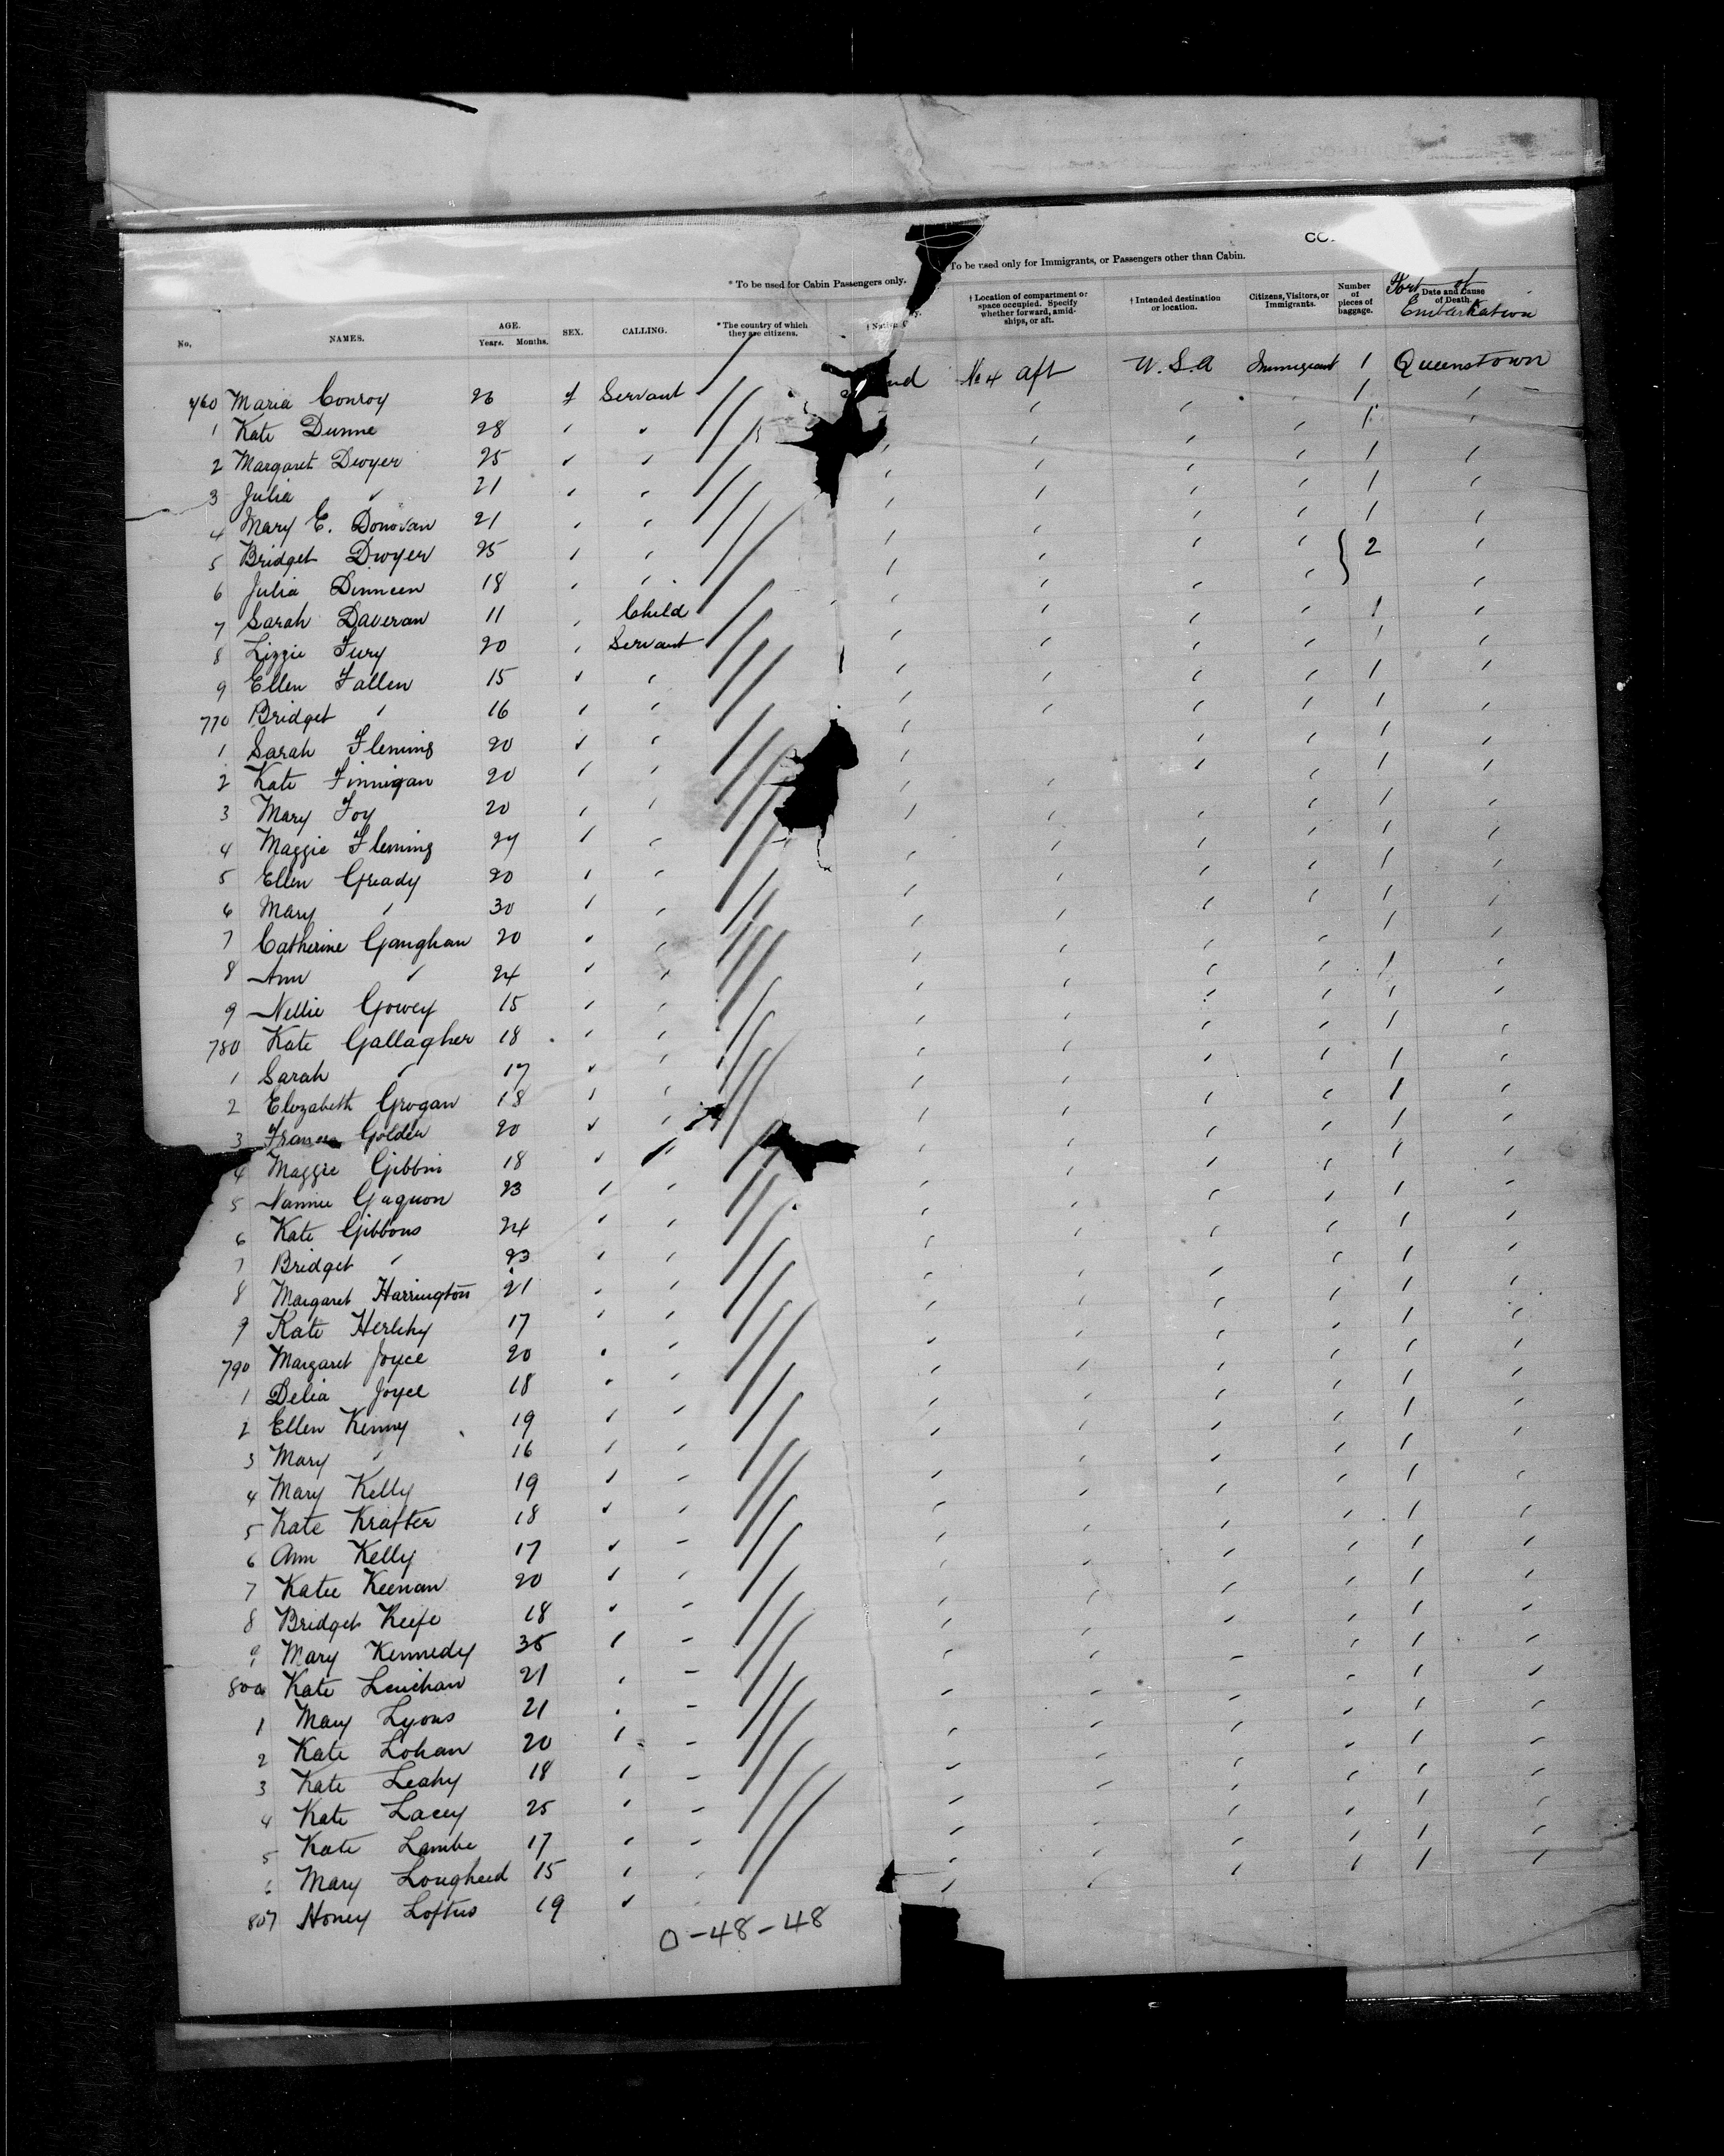 CO
* To be used for Cabin Passengers only. To be used only for Immigrants, or Passengers other than Cabin.
No. NAMES. AGE. Years. Months. SEX. CALLING. * The country of which they are citizens. † Native † Location of compartment or space occupied. Specify whether forward, amidships, or aft. † Intended destination or location. Citizens, Visitors, or Immigrants. Number of pieces of baggage. Date and Cause of Death. Port of Embarkation
760 Maria Conroy 26 f Servant nd No 4 aft U.S.A Immigrant 1 Queenstown
1 Kate Dunne 28 " " 1
2 Margaret Dwyer 25 " " 1
3 Julia " 21 " " 1
4 Mary E. Donovan 21 " " 1
5 Bridget Dwyer 25 " " 1
6 Julia Dinneen 18 " " } 2
7 Sarah Daveran 11 " Child
8 Lizzie Fury 20 " Servant 1
9 Ellen Fallen 15 " " 1
770 Bridget " 16 " " 1
1 Sarah Fleming 20 " " 1
2 Kate Finnigan 20 " " 1
3 Mary Foy 20 " " 1
4 Maggie Fleming 27 " " 1
5 Ellen Gready 20 " " 1
6 Mary " 30 " " 1
7 Catherine Gaughan 20 " " 1
8 Ann " 24 " " 1
9 Nellie Gowey 15 " " 1
780 Kate Gallagher 18 " " 1
1 Sarah " 17 " " 1
2 Elizabeth Grogan 18 " " 1
3 Golden 20 " " 1
4 Maggie Gibbin 18 " " 1
5 Nannie 23 " " 1
6 Kate Gibbons 24 " " 1
7 Bridget " 23 " " 1
8 Margaret Harrington 21 " " 1
9 Kate Herlihy 17 " " 1
790 Margaret Joyce 20 " " 1
1 Delia Joyce 18 " " 1
2 Ellen Kenny 19 " " 1
3 Mary " 16 " " 1
4 Mary Kelly 19 " " 1
5 Kate Krafter 18 " " 1
6 Ann Kelly 17 " " 1
7 Katie Keenan 20 " " 1
8 Bridget Keefe 18 " " 1
9 Mary Kennedy 35 " " 1
800 Kate Lenihan 21 " " 1
1 Mary Lyons 21 " " 1
2 Kate Lohan 20 " " 1
3 Kate Leahy 18 " " 1
4 Kate Lacey 25 " " 1
5 Kate Lambe 17 " " 1
6 Mary Lougheed 15 " " 1
807 Honey Loftus 19 " 1
0-48-48